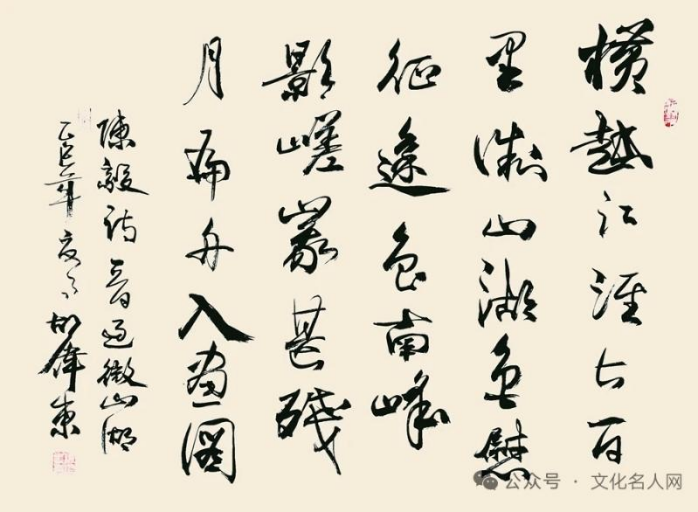 横越江淮七百
里微山湖色慰
征途鲁南峰
影嵯峨甚残
月扁舟入画图
陈毅诗 过微山湖
乙巳年夏 伟东
公众号 · 文化名人网